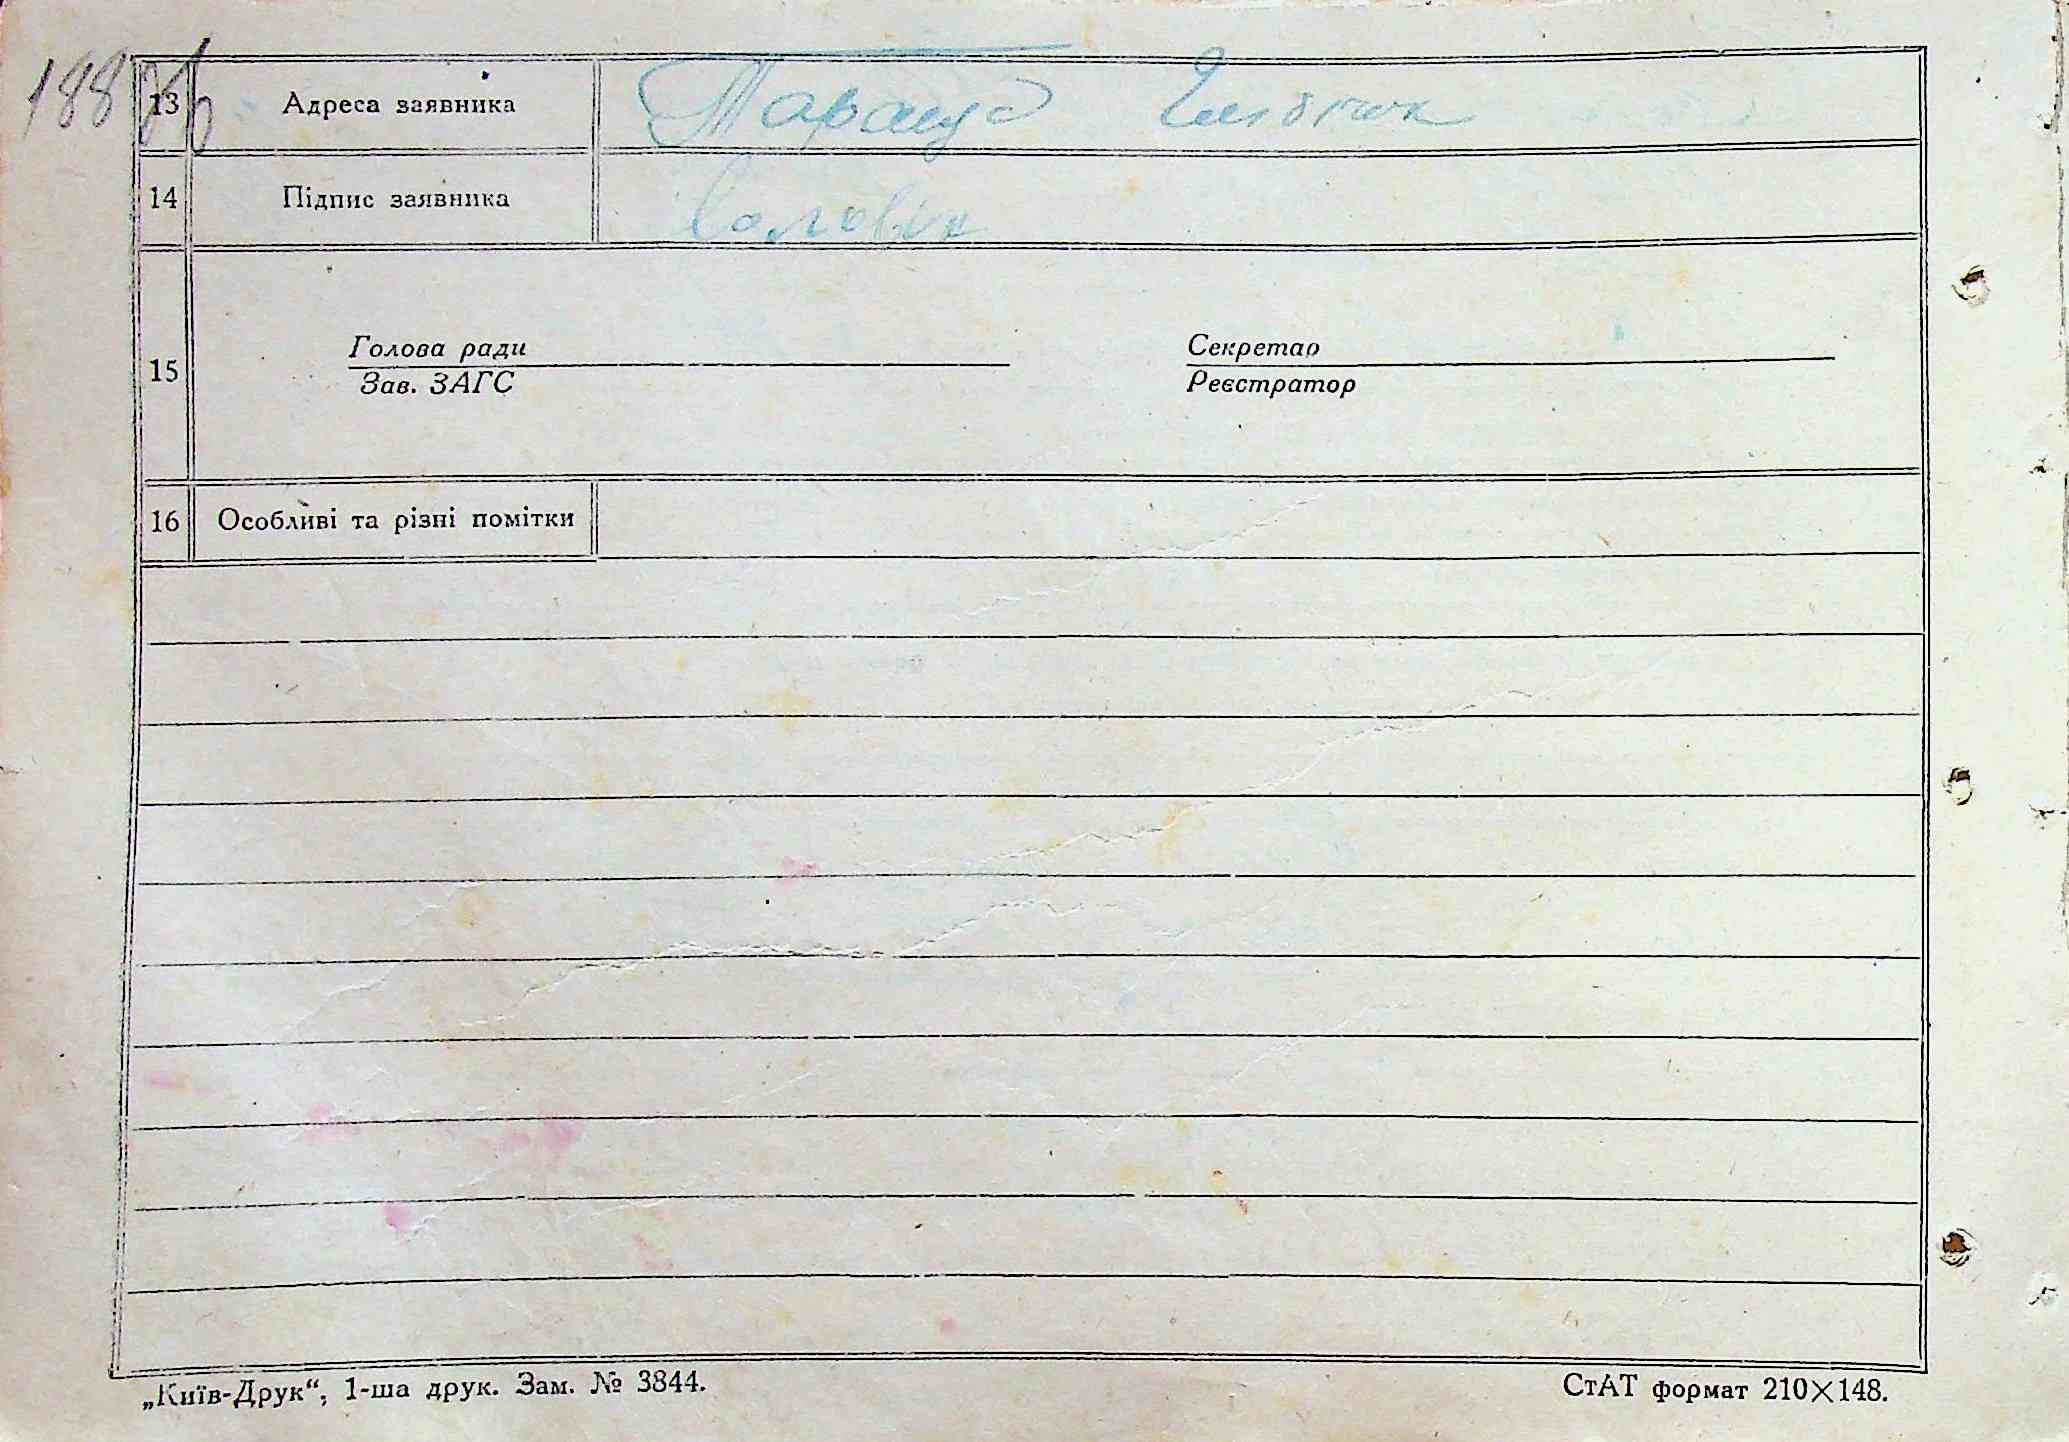 13 Адреса заявника Тараща
14 Підпис заявника
15
Голова ради Секретар
Зав. ЗАГС Реєстратор
16 Особливі та різні помітки
„Київ-Друк“, 1-ша друк. Зам. № 3844. СтАТ формат 210×148.